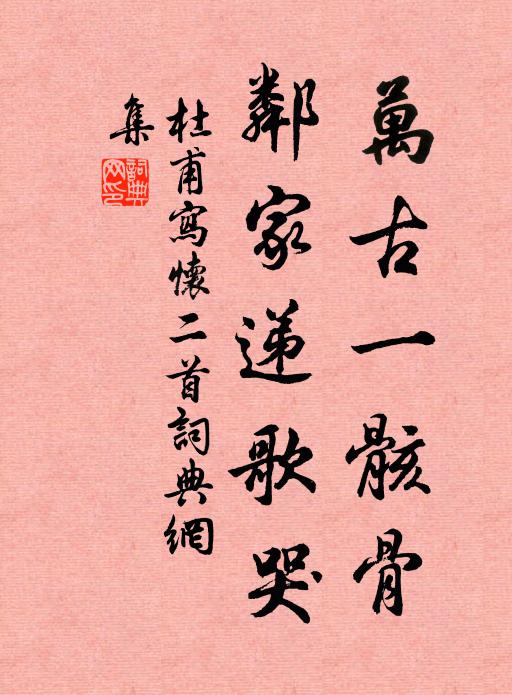 萬古一骸骨
鄰家遞歌哭
杜甫寫懷二首詞典網
集
詞典网印